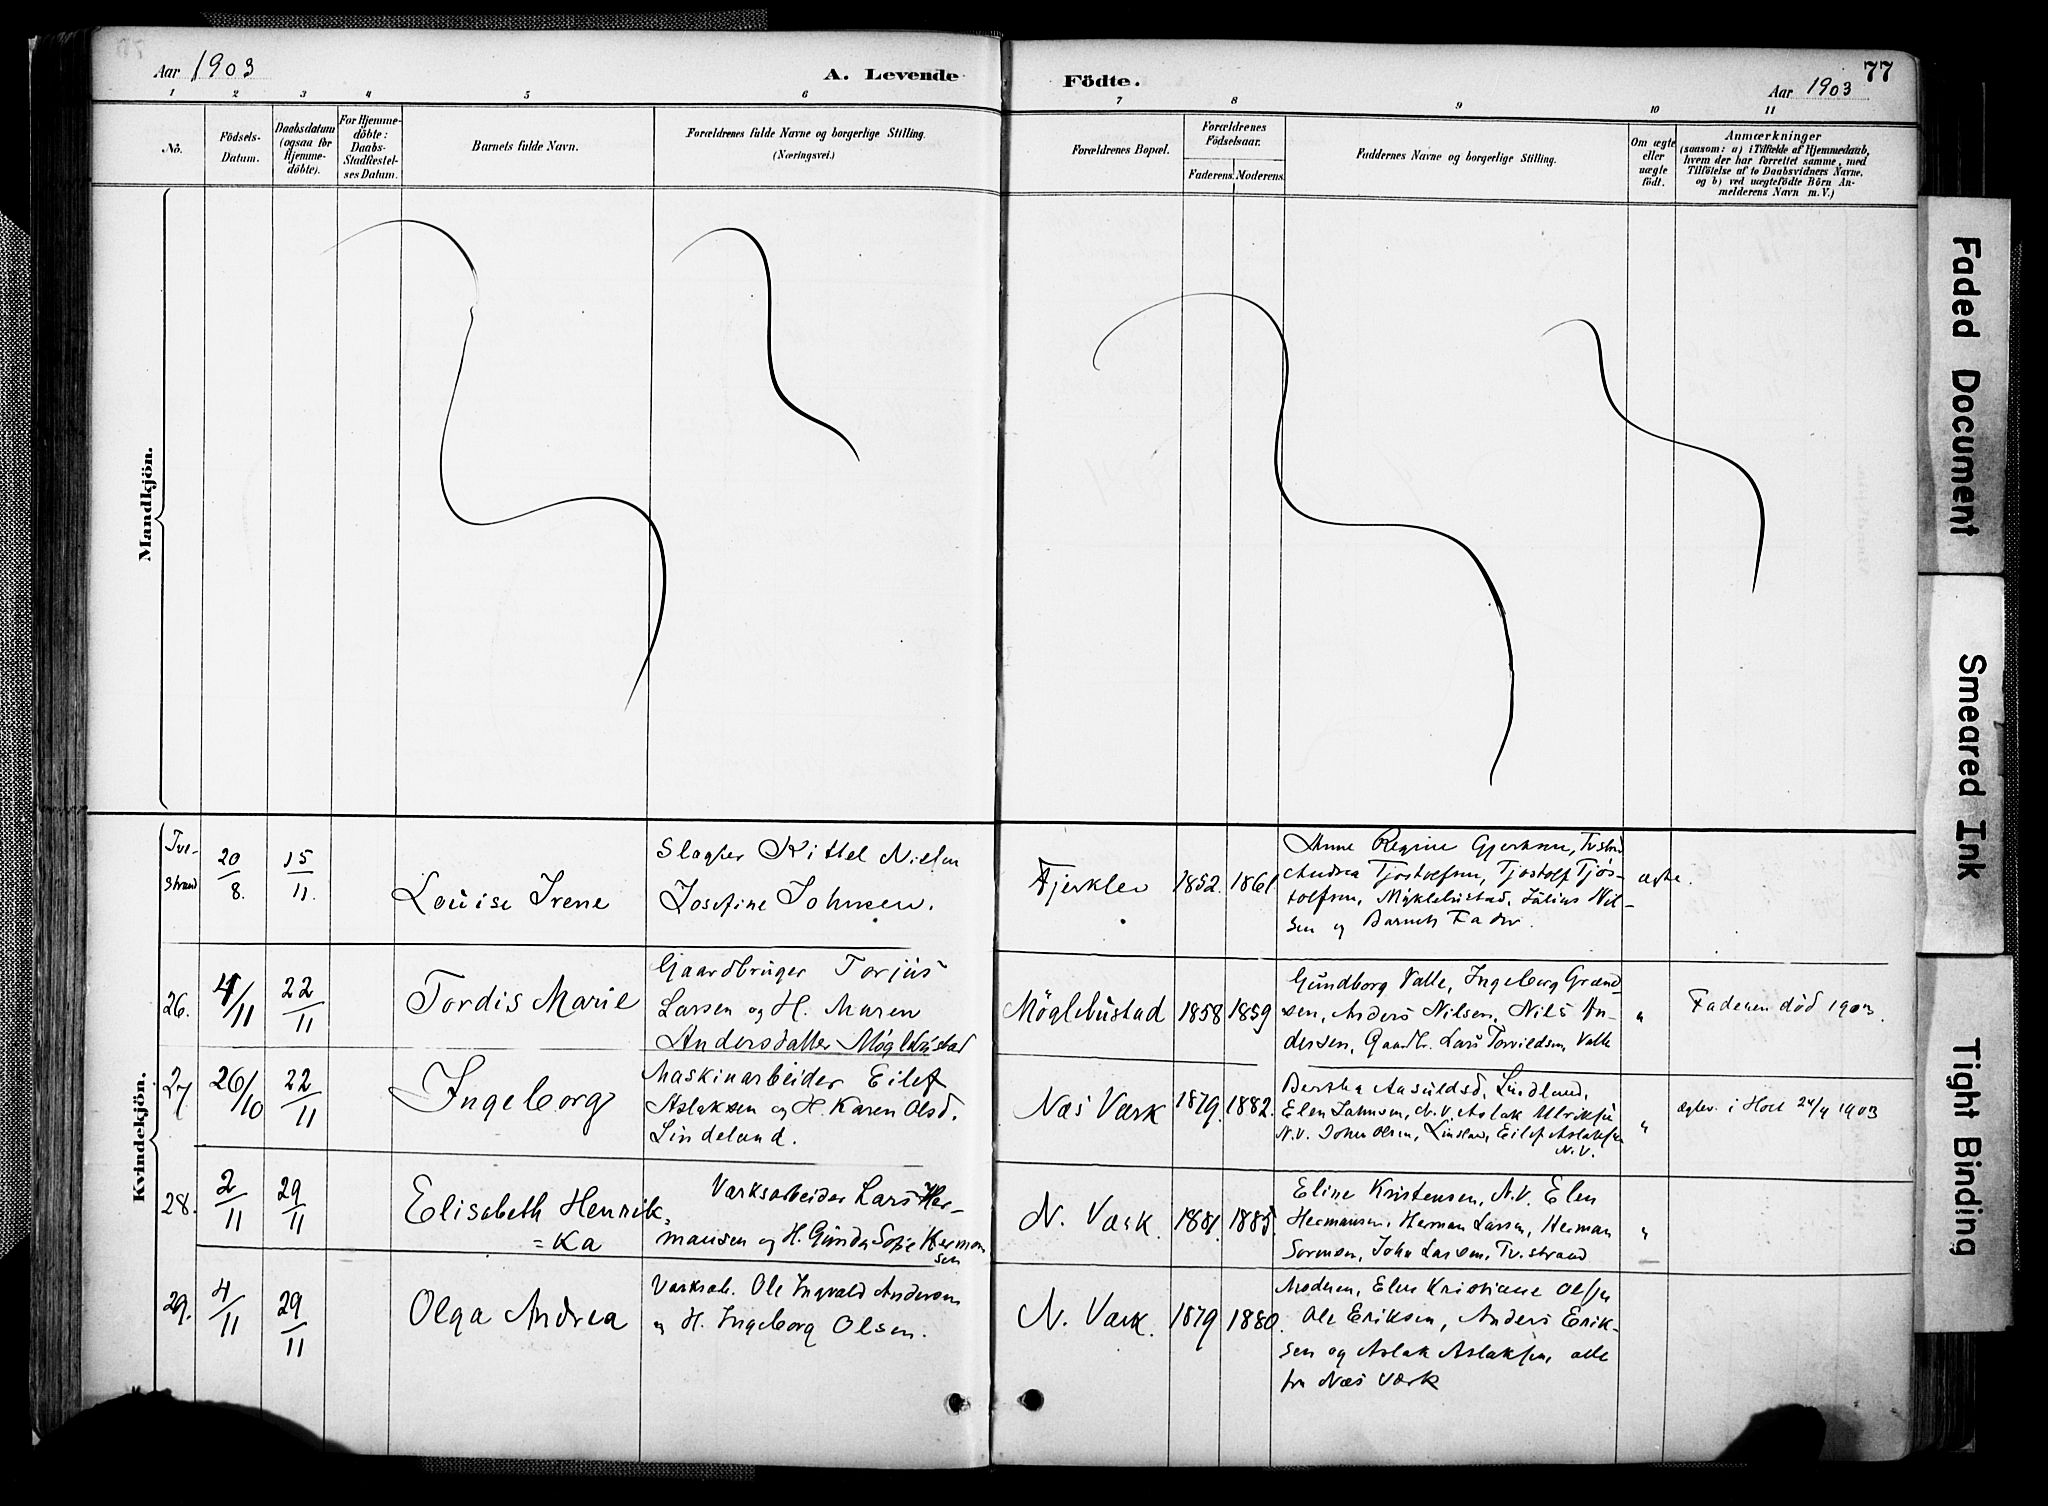 Aar 1903
A. Levende
Födte.
77
Aar 1903
1 2 3 4 5 6 7 8 9 10 11
No.
Födsels-Datum.
Daabsdatum (ogsaa for Hjemme-döbte).
For Hjemme-döbte: Daabs-Stadfestel-ses Datum.
Barnets fulde Navn.
Forældrenes fulde Navne og borgerlige Stilling.
(Næringsvei.)
Forældrenes Bopæl.
Forældrenes Födselsaar.
Faderens. Moderens.
Faddernes Navne og borgerlige Stilling.
Om ægte eller uægte födt.
Anmærkninger
(saasom: a) i Tilfælde af Hjemmedaab,
hvem der har forrettet samme, med
Tilföielse af to Daabsvidners Navne,
og b) ved uægtefödte Börn An-
melderens Navn m. V.)
Mandkjön.
Kvindekjön.
Tve-
strand
20/8.
15/11.
Louise Irene
Slagter Kittel Nielsen
Josefine Johnsen.
Fjerklev
1852.
1861
Anne Regine
Andrea Tjöstolfsen, Tjöstolf Tjös-
tolfsen, Möklebustad, Julius Niel-
sen og Barnets Fader.
ægte.
26.
4/11
22/11
Tordis Marie
Gaardbruger Torjus
Larsen og H. Maren
Andersdatter Möglebustad
Möglebustad
1858
1859
Gundborg Valle, Ingeborg
Anders Nilsen, Nils An-
dersen, Gaardbr. Lars Valle
"
Faderen död 1903.
27
26/10
22/11
Ingeborg
Maskinarbeider Eilef
Aslaksen og H. Karen Olsd.
Lindeland.
Næs Værk
1879.
1882.
Bertha Aasuldsd. Lindland,
Elen Johnsen, N.V. Aslak Ulriksen
N.V. John Olsen, Lindland, Eilef Aslaksen
N.V.
"
ægtev. i Holt 24/4 1903
28.
2/11
29/11
Elisabeth Henrik=
=ka
Værksarbeider Lars Her-
mansen og H. Gunda Sofie Herman
sen
N. Værk.
1881.
1885.
Eline Kristensen, N.V. Elen
Hermansen, Herman Larsen, Herman
Sorensen, John Larsen, Tv.strand
"
29.
4/11
29/11
Olga Andrea
Værksarb. Ole Ingvald Andersen
og H. Ingeborg Olsen.
N. Værk.
1879
1880.
Moderen, Elen Kristiane Olsen
Ole Eriksen, Anders Erik-
sen og Aslak Aslaksen, alle
fra Næs Værk
Faded Document
Smeared Ink
Tight Binding